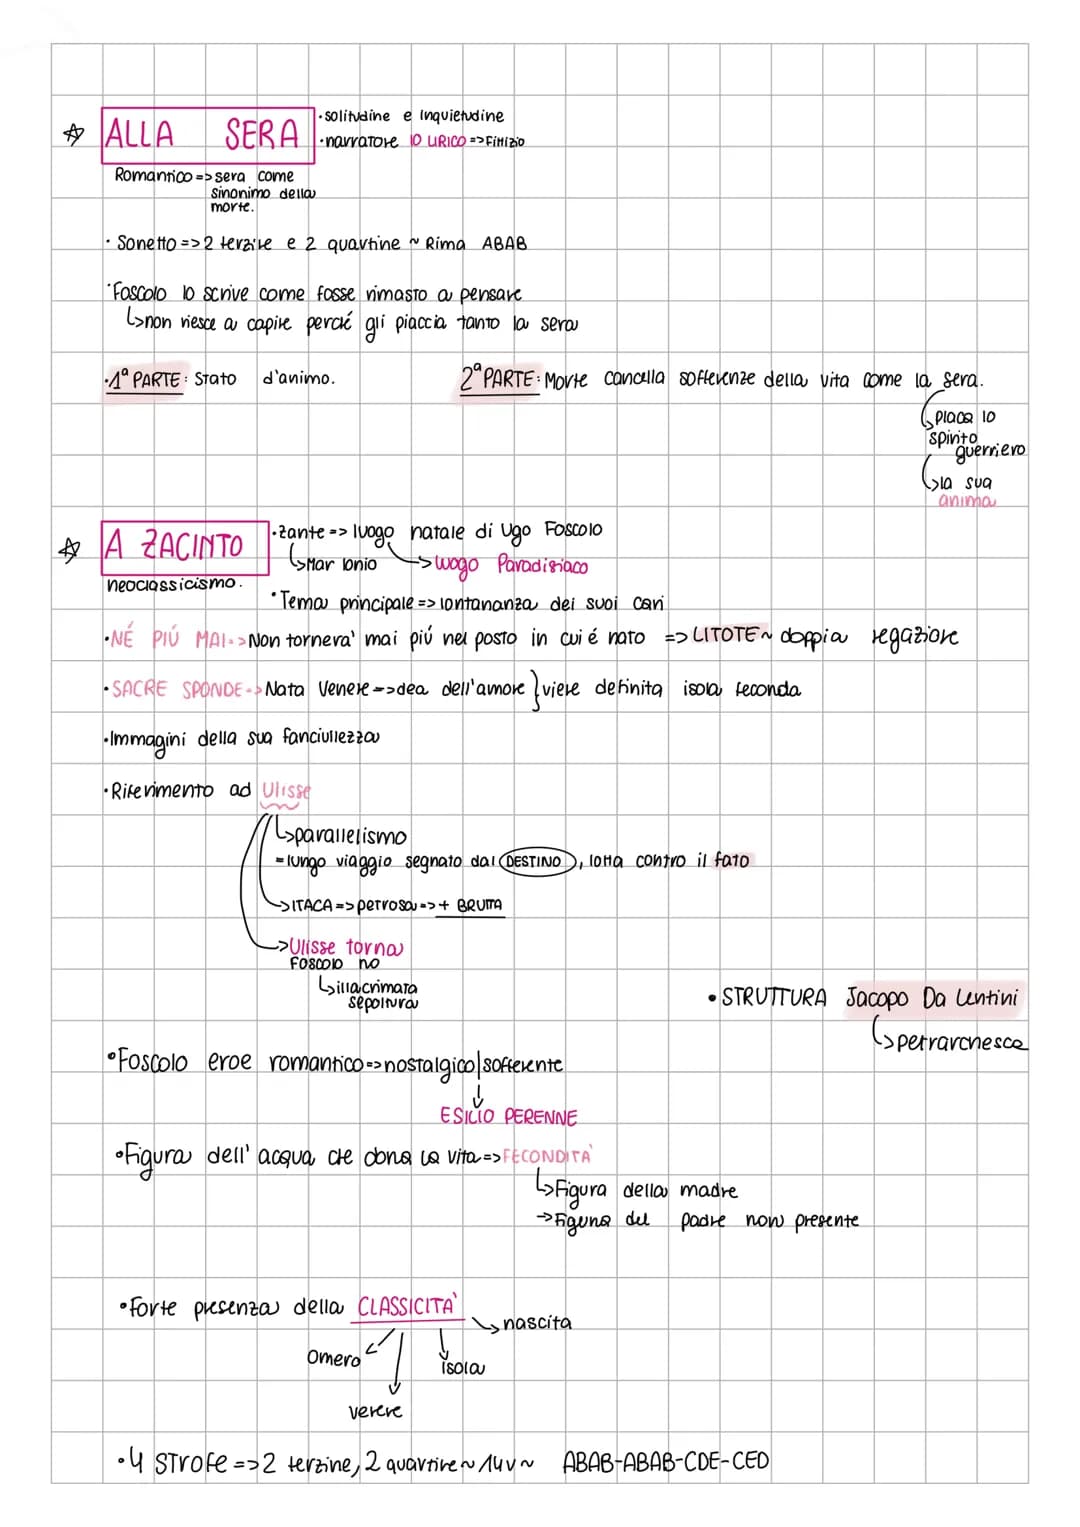 ALLA SERA
·solitudine e inquietudine
·narratore IO LIRICO => Fittizio
Romantico => sera come
sinonimo della
morte.
· Sonetto => 2 terzine e 2 quartine ~ Rima ABAB
·Foscolo lo scrive come fosse rimasto a pensare
↳non riesce a capire perché gli piaccia tanto la sera
·1ª PARTE: Stato d'animo.
2ª PARTE: Morte cancella sofferenze della vita come la sera.
↳placa lo
spirito
guerriero
↳la sua
anima
A ZACINTO
·Zante => luogo natale di Ugo Foscolo
↳Mar Ionio
→luogo Paradisiaco
neoclassicismo.
·Tema principale => lontananza dei suoi cari
·NÉ PIÚ MAI => Non tornera' mai piú nel posto in cui é nato => LITOTE ~ doppia negazione
·SACRE SPONDE -> Nata Venere -> dea dell'amore } viene definita isola feconda
·Immagini della sua fanciullezza
·Riferimento ad Ulisse
↳parallelismo
=lungo viaggio segnato dal DESTINO, lotta contro il fato
→ITACA => petrosa => + BRUTTA
→Ulisse torna
Foscolo no
↳illacrimata
sepoltura
•STRUTTURA Jacopo Da Lentini
↳petrarchesca
•Foscolo eroe romantico => nostalgico|sofferente
↓
ESILIO PERENNE
•Figura dell'acqua che dona la vita => FECONDITA'
↳Figura della madre
→Figura del padre non presente
•Forte presenza della CLASSICITA'
→nascita
Omero
isola
venere
·4 STROFE => 2 terzine, 2 quartine ~ 14v ~ ABAB-ABAB-CDE-CED